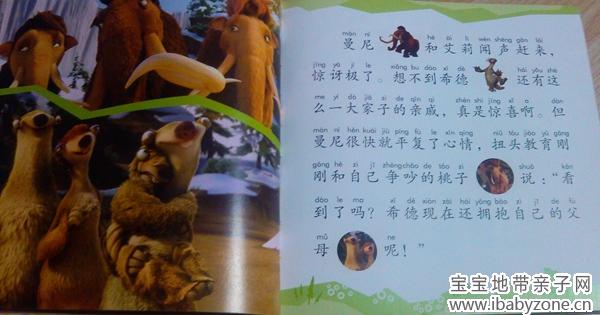 màn ní hé ài lì wén shēng gǎn lái
曼尼 和艾莉闻声赶来，
jīng yà jí le xiǎng bu dào xī dé hái yǒu zhè
惊讶极了。想不到希德 还有这
me yí dà jiā zi de qīn qi zhēn shi jīng xǐ a dàn
么一大家子的亲戚，真是惊喜啊。但
màn ní hěn kuài jiù píng fù le xīn qíng niǔ tóu jiào yù gāng
曼尼很快就平复了心情，扭头教育刚
gāng hé zì jǐ zhēng chǎo de táo zi shuō kàn
刚和自己争吵的桃子 说：“看
dào le ma xī dé xiàn zài hái yōng bào zì jǐ de fù
到了吗？希德现在还拥抱自己的父
mǔ ne
母 呢！”
宝宝地带亲子网
www.ibabyzone.cn